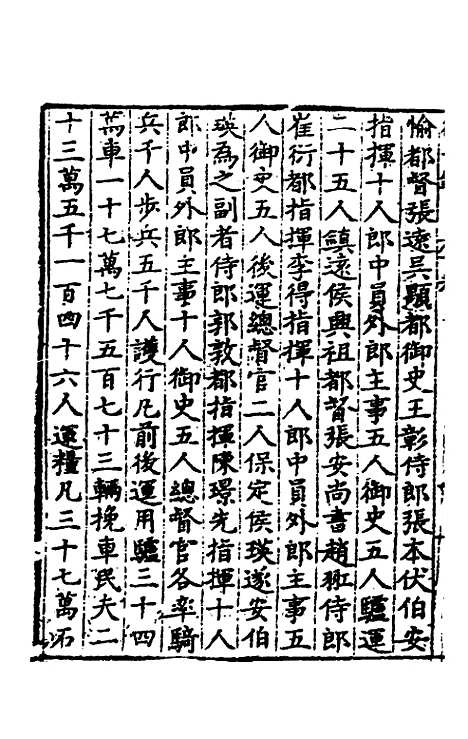 愉都督張遠吳顯都御史王彰侍郎張本伏伯安
指揮十人郎中員外郎主事五人御史五人驢運
二十五人鎮遠侯興祖都督張安尚書趙羾侍郎
崔衍都指揮李得指揮十人郎中員外郎主事五
人御史五人後運總督官二人保定侯瑛遂安伯
瑛為之副者侍郎郭敦都指揮陳璟先指揮十人
郎中員外郎主事十人御史五人總督官各率騎
兵千人步兵五千人護行凡前後運用驢三十四
萬車一十七萬七千五百七十三輛挽車民夫二
十三萬五千一百四十六人運糧凡三十七萬石